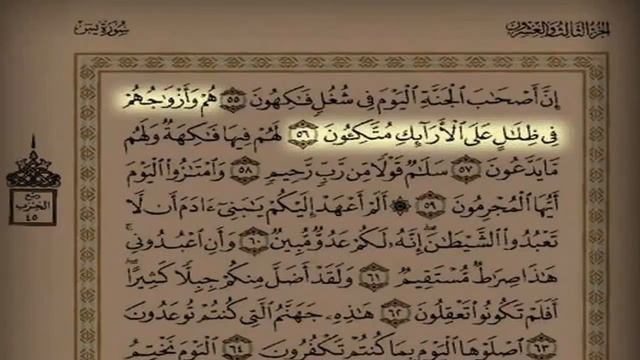 الجزء الثالث والعشرون
سورة يس
إِنَّ أَصْحَٰبَ ٱلْجَنَّةِ ٱلْيَوْمَ فِى شُغُلٍ فَٰكِهُونَ ٥٥ هُمْ وَأَزْوَٰجُهُمْ
فِى ظِلَٰلٍ عَلَى ٱلْأَرَآئِكِ مُتَّكِـُٔونَ ٥٦ لَهُمْ فِيهَا فَٰكِهَةٌ وَلَهُم
مَّا يَدَّعُونَ ٥٧ سَلَٰمٌ قَوْلًا مِّن رَّبٍّ رَّحِيمٍ ٥٨ وَٱمْتَٰزُوا۟ ٱلْيَوْمَ
أَيُّهَا ٱلْمُجْرِمُونَ ٥٩ ۞ أَلَمْ أَعْهَدْ إِلَيْكُمْ يَٰبَنِىٓ ءَادَمَ أَن لَّا
تَعْبُدُوا۟ ٱلشَّيْطَٰنَ ۖ إِنَّهُۥ لَكُمْ عَدُوٌّ مُّبِينٌ ٦٠ وَأَنِ ٱعْبُدُونِى ۚ
هَٰذَا صِرَٰطٌ مُّسْتَقِيمٌ ٦١ وَلَقَدْ أَضَلَّ مِنكُمْ جِبِلًّا كَثِيرًا ۖ
أَفَلَمْ تَكُونُوا۟ تَعْقِلُونَ ٦٢ هَٰذِهِۦ جَهَنَّمُ ٱلَّتِى كُنتُمْ تُوعَدُونَ
٦٣ ٱصْلَوْهَا ٱلْيَوْمَ بِمَا كُنتُمْ تَكْفُرُونَ ٦٤ ٱلْيَوْمَ نَخْتِمُ
ربع
الحزب
٤٥